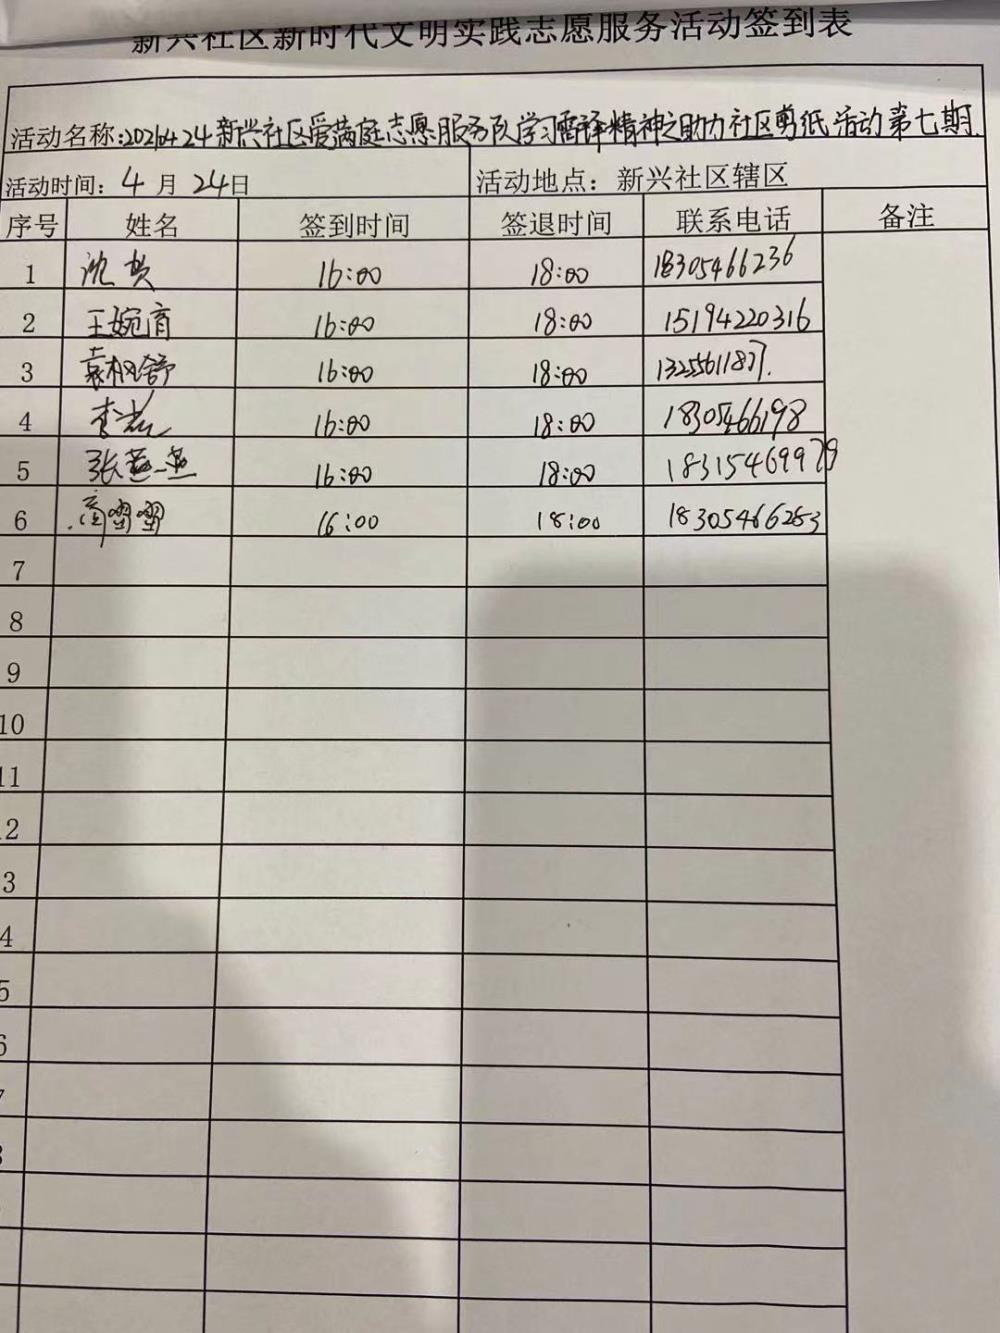 新兴社区新时代文明实践志愿服务活动签到表
活动名称:20210424新兴社区爱满庭志愿服务队学习雷锋精神之助力社区剪纸活动第七期.
活动时间: 4 月 24日 活动地点: 新兴社区辖区
序号 姓名 签到时间 签退时间 联系电话 备注
1 沈贺 16:00 18:00 18305466236
2 王婉育 16:00 18:00 15194220316
3 袁枫舒 16:00 18:00
4 李 16:00 18:00 18305466198
5 张燕燕 16:00 18:00 18315469979
6 商曌曌 16:00 18:00 18305466253
7
8
9
10
11
12
13
14
15
16
17
18